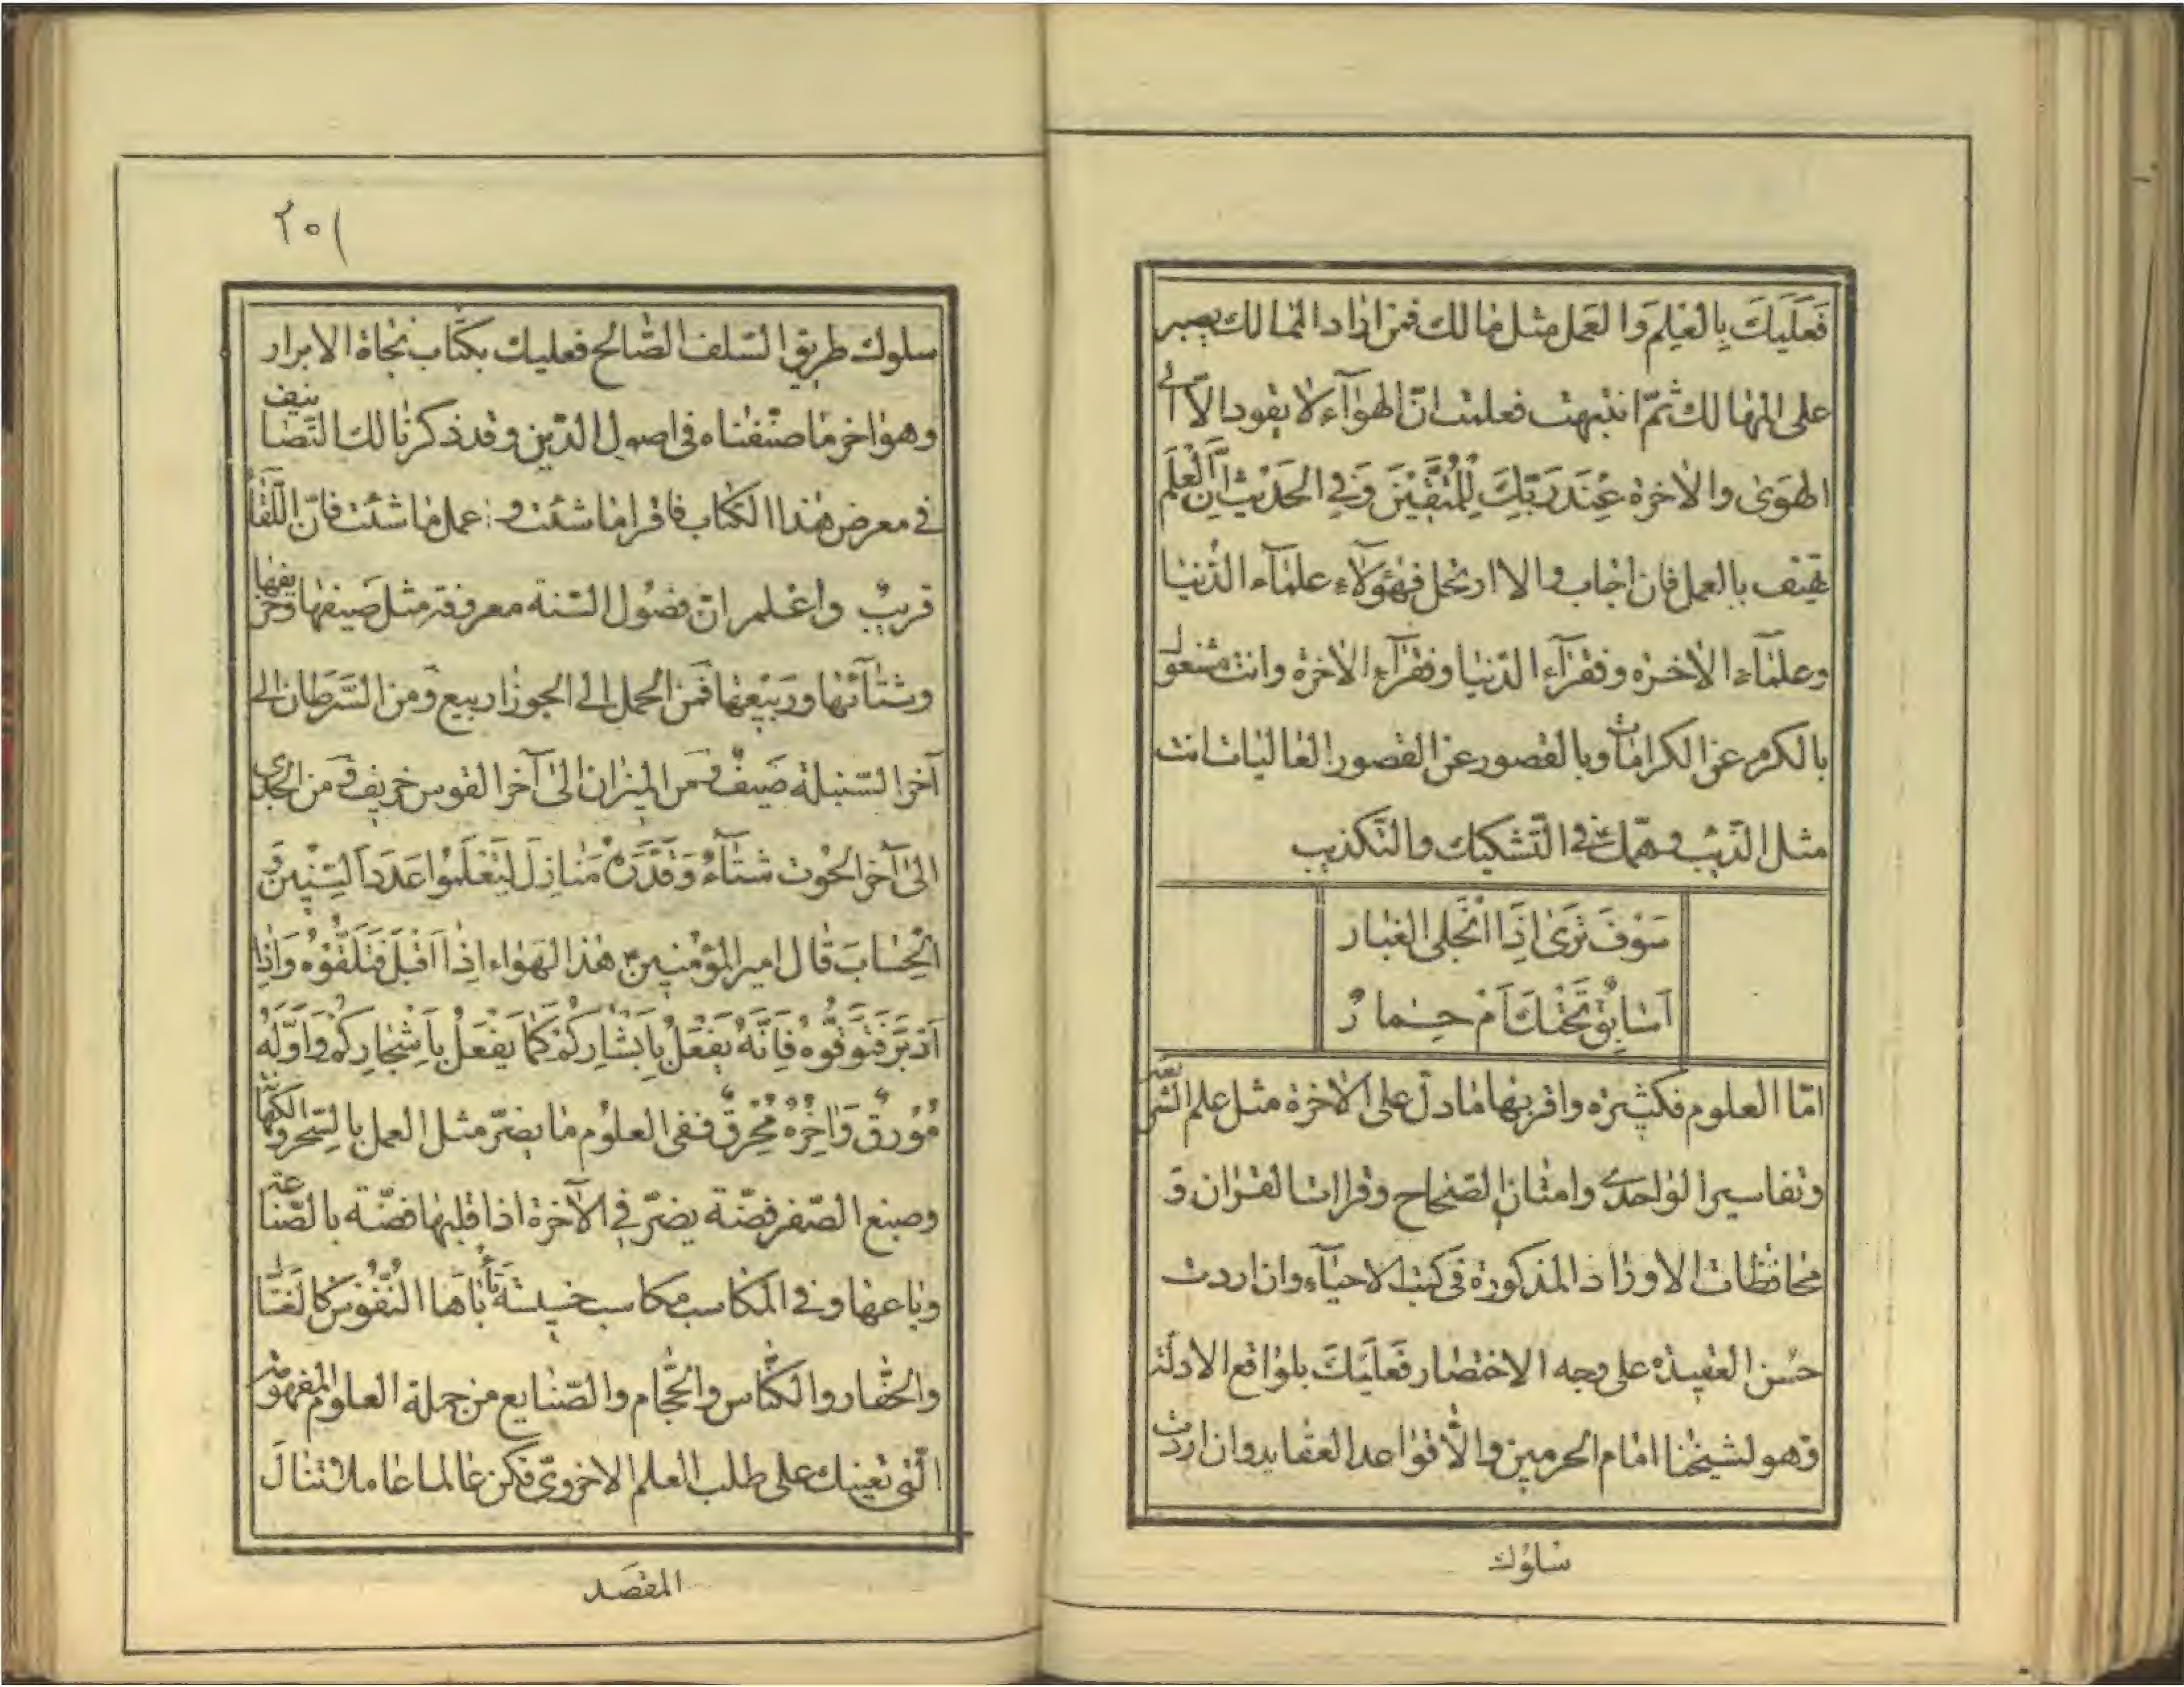 فَعَلَيكَ بِالعِلمِ وَالعَمل مثل مالك فمن اراد الممالك يصبر
على المهالك ثمّ انتبهت فعلمت انّ الهوآء لا يقود الّا الى
الهَوىٰ والاخرة عِندَ رَبِّكَ لِلمُتَّقينَ وَفي الحَديث اِنَّ العِلمَ
يهتف بالعمل فان اجاب والا ارتحل فهؤلآء علمآء الدُّنيا
وعلمآء الاخرة وفقرآء الدّنيا وفقرآء الاخرة وانت مشغول
بالكرم عن الكرامات وبالقصور عن القصور العاليات انت
مثل الذّئب وهمّك في التّشكيك والتّكذيب
سَوفَ تَرى اِذَا انجَلى الغبار
اَسابِقٌ تَحتَكَ اَم حِمارٌ
امّا العلوم فكثيرة واقربها مادلّ على الاخرة مثل علم الشرع
وتفاسير الواحدى وامثان الصّحاح وقراات القران و
محافظات الاوراد المذكورة في كتب الاحيآء وان اردت
حسن العقيدة على وجه الاختصار فَعَلَيكَ بلواقع الادلّة
وهو لشيخنا امام الحرمين والّا قواعد العقايد وان اردت
سلوك
٢٥١
سلوك طريق السّلف الصّالح فعليك بكتاب نجاة الابرار
وهو اخر ما صنّفناه في اصول الدّين وقد ذكرنا لك التّصانيف
في معرض هذا الكتاب فاقرا ما شئت و اعمل ما شئت فانّ اللّقا
قريبٌ واعلم انّ فصُول السّنة معروفة مثل صَيفها وخريفها
وشتآئها ورَبيعها فَمن الحمل الى الجوزا ربيع ومن السَّرَطان الى
آخر السّنبلة صَيفٌ ومن الميزان الى آخر القوس خريف ومن الجدى
الى آخر الحوت شتآءٌ وَقَدَّرَهُ مَنازِلَ لِتَعلَموا عَدَدَ السِّنينَ وَ
الحِسابَ قال امير المؤمنين هذا الهَواء اِذا اَقبَلَ فَتَلَقَّوهُ وَاِذا
اَدبَرَ فَتَوَقُّوه فَاِنَّهُ يَفعَلُ بِاَبشارِكُم كَما يَفعَلُ بِاَشجارِكُم وَاَوَّلُهُ
مُورِقٌ وَاخِرُهُ مُحرِقٌ ففي العلوم ما يضرّ مثل العمل بالسّحر والكهانة
وصبغ الصّفر فضّة يضرّ في الآخرة اذا قلبها فضّة بالصّناعة
وباعها وفي المكاسب مكاسب خسيسة تأباها النُّفُوس كالغسّال
والحفّار والكنّاس والحَجّام والصّنايع من جملة العلوم المفهومة
الّتى تعينك على طلب العلم الاخروىّ فكن عالما عاملا تنالَ
المقصَد